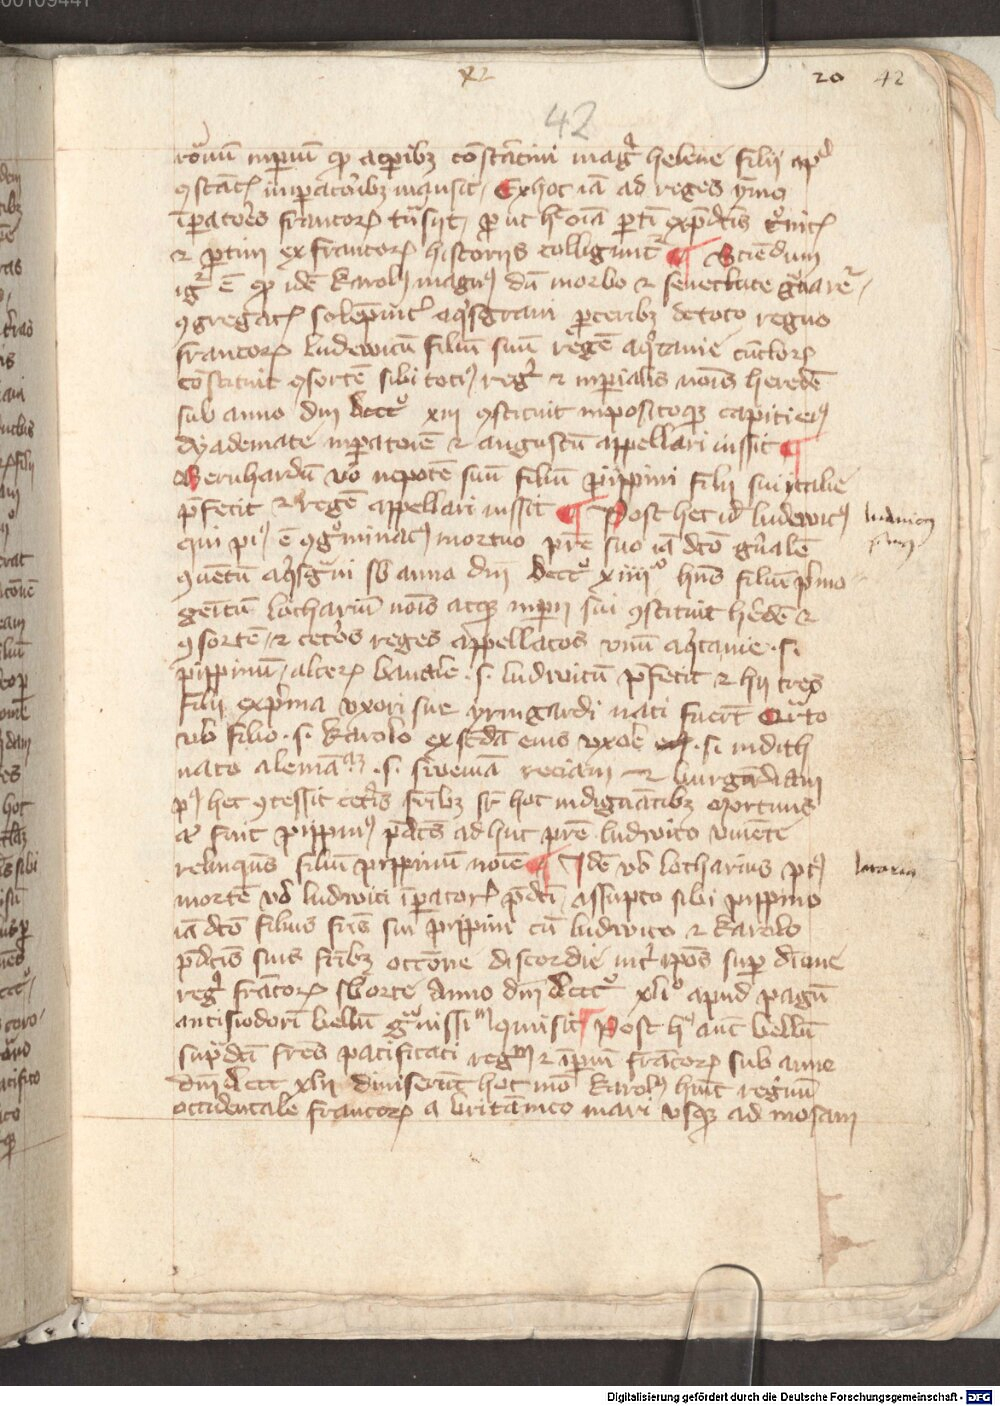 xx
20 42
42
romanum imperium quod a temporibus constantini magni helene filii apud
constantinopolis imperatoribus mansit. Ex hoc iam ad reges ymo
imperatores francorum transiit, prout hec omnia partim ex predictis cronicis
et partim ex francorum historiis colliguntur ¶ Sciendum
igitur est quod idem karolus magnus dum morbo et senectute gravaretur,
congregatis solempniter aquisgrani proceribus de toto regno
francorum ludewicum filium suum regem aquitanie cunctorum
constituit consortem sibi totius regni et imperialis nominis heredem
sub anno domini dccc xiii constituit impositoque capiti eius
dyademate imperatorem et augustum appellari iussit ¶
Bernhardum vero nepotem suum filium pippini filii sui italie
prefecit et regem appellari iussit ¶ Post hec idem ludewicus
qui pius est cognominatus mortuo patre suo iam dicto generalem
conventum aquisgrani sub anno domini dccc xiiii habens filium primo
genitum lotharium nominis atque imperii sui constituit heredem et
consortem, et ceteros reges appellatos unum aquitanie .s.
pippinum, alterum bauarie .s. ludwicum prefecit et hii tres
filii ex prima uxori sue yrmgardi nati fuerunt Quarto
vero filio .s. karolo ex secunda eius uxore .s. iudith
nato alemaniam .s. sweuiam reciam et burgundiam
post hec concessit ceteris fratribus super hoc indignantibus Mortuus
autem fuit pippinus predictus adhuc patre ludwico vivente
relinquens filium pippinum nomine ¶ Idem vero lotharius post
mortem vero ludwici imperatoris predicti, assumpto sibi pippino
iam dicto filius fratris sui pippini cum ludwico et karolo
predictis suis fratribus occasione discordie inter ipsos super divisione
regni francorum suborte Anno domini dccc xli apud pagum
antisiodorum bellum gravissimum commisit ¶ Post hoc autem bellum
supradicti fratres pacificati regnum et imperium francorum sub anno
domini dccc xlii diviserunt hoc modo karolus habuit regnum
occidentale francorum a britannico mari usque ad mosam
lotarius
Digitalisierung gefördert durch die Deutsche Forschungsgemeinschaft - DFG